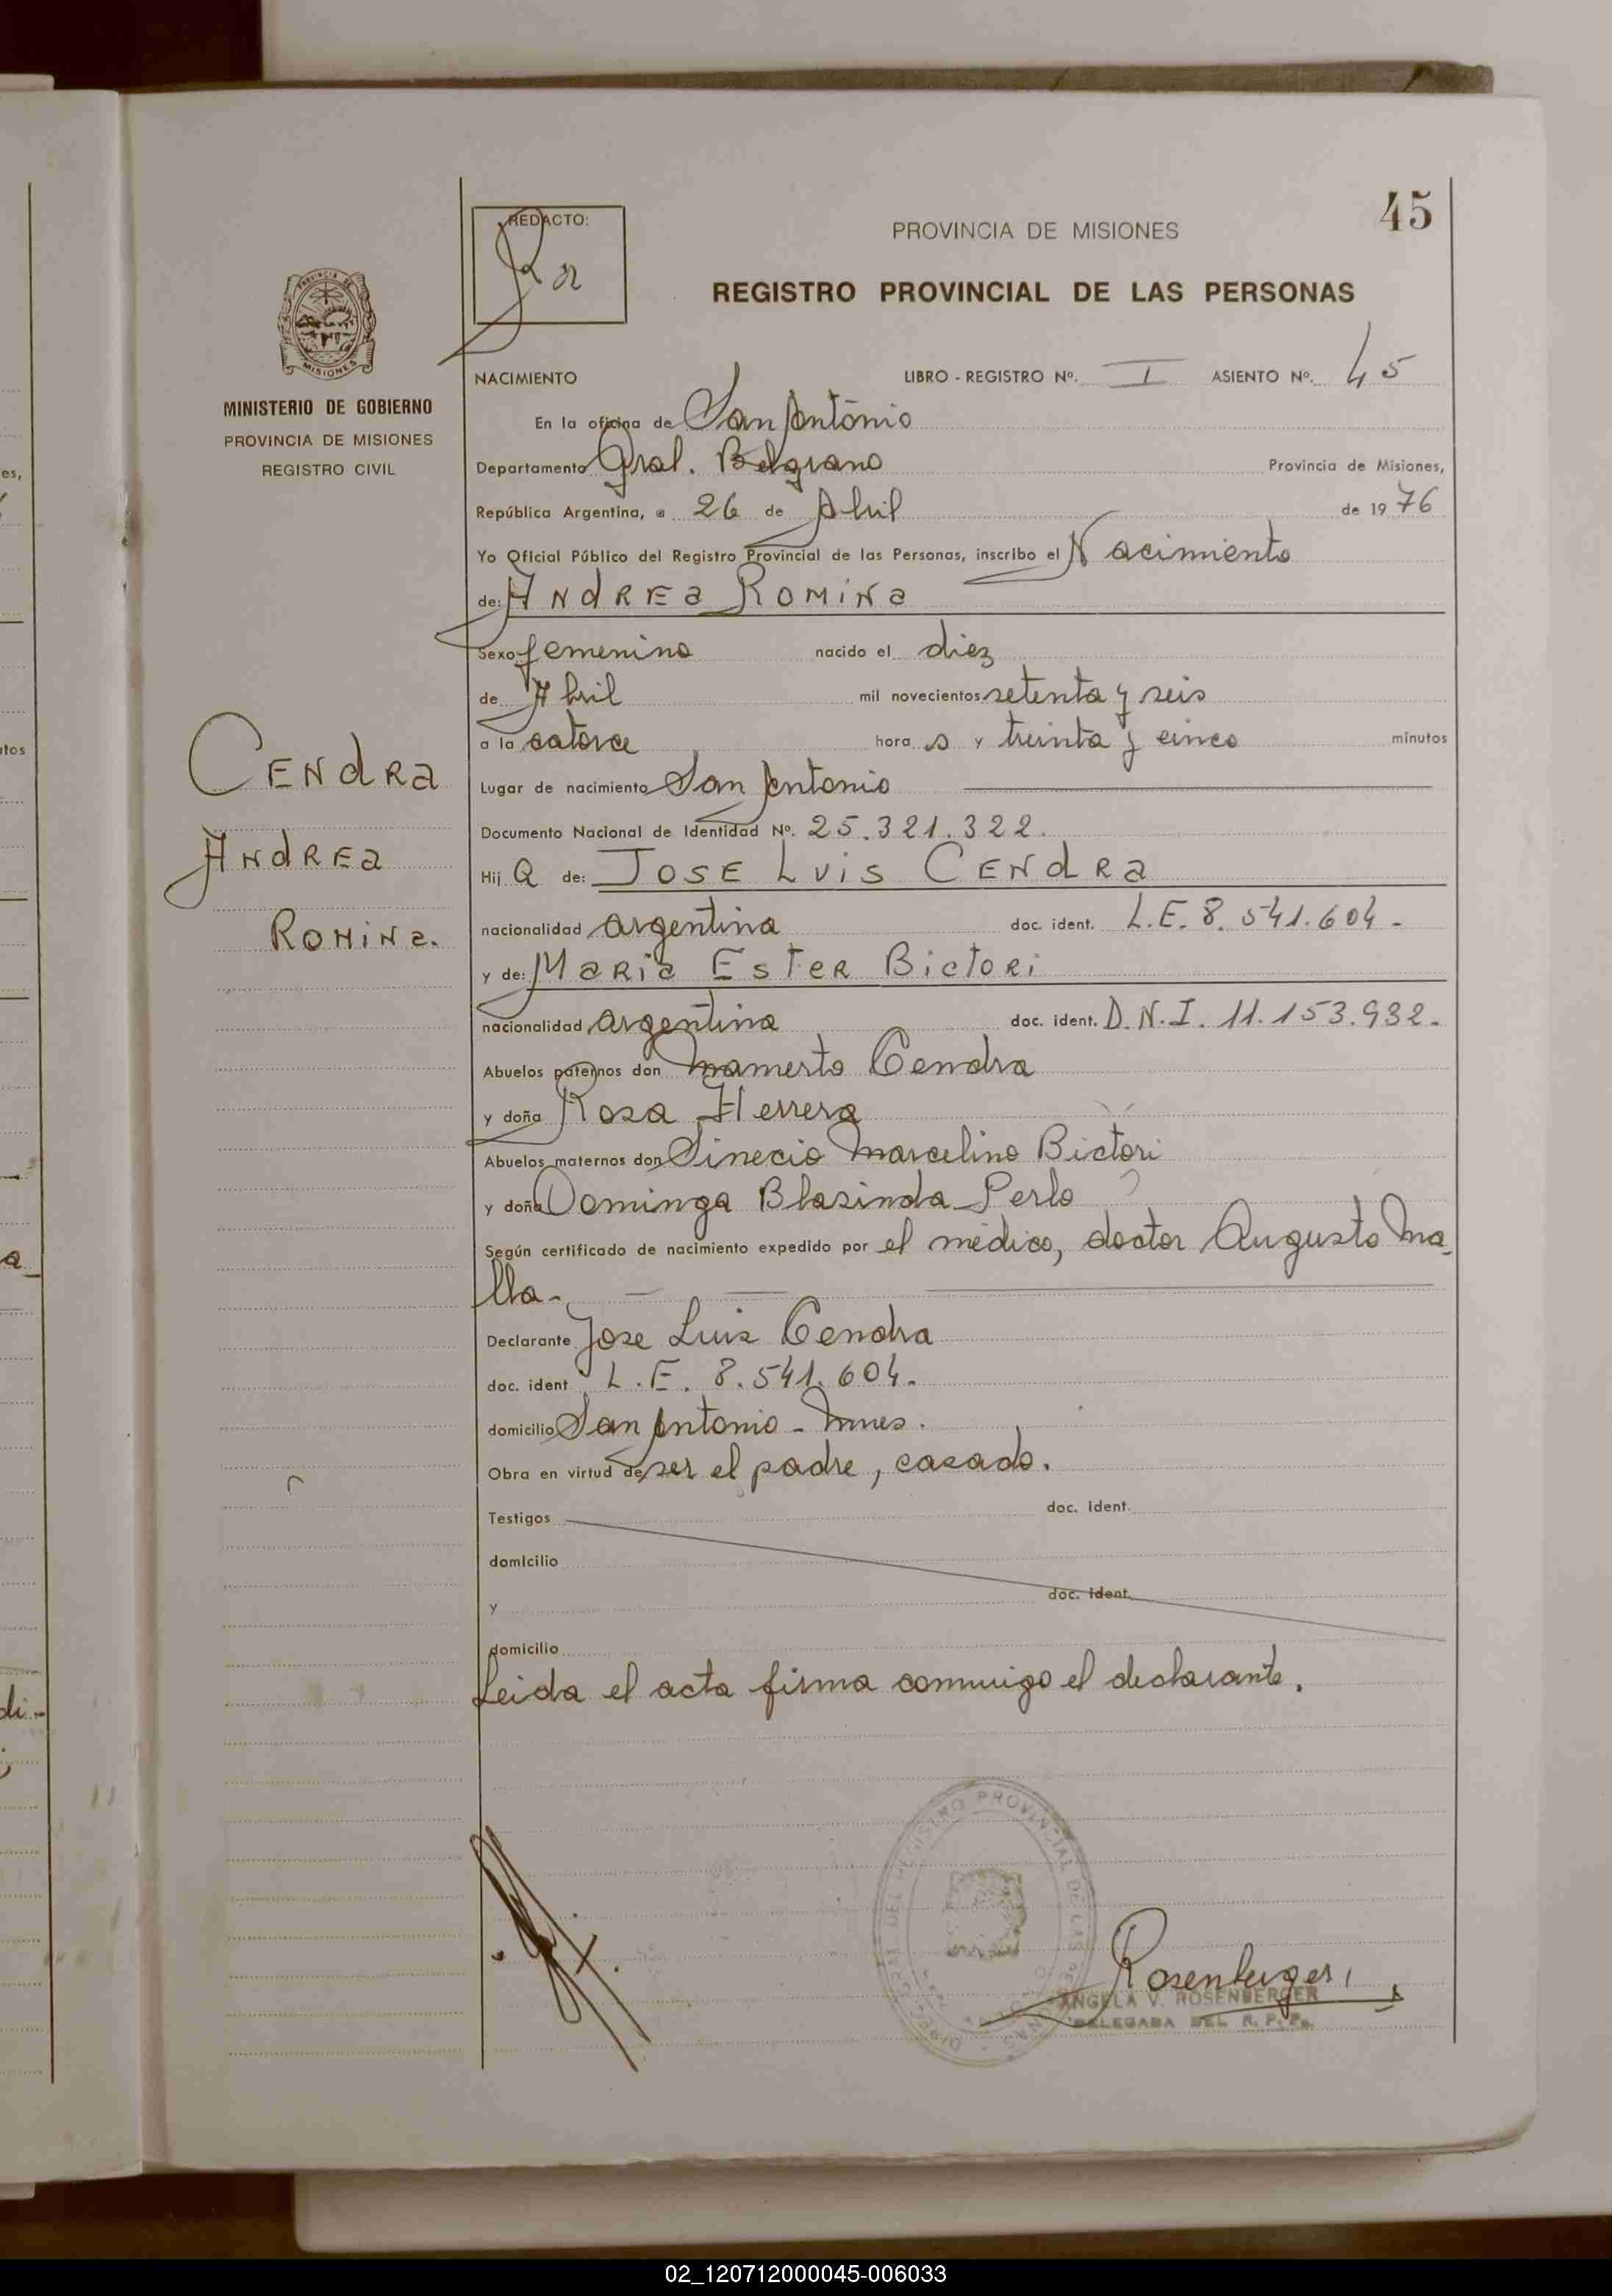 45
REDACTO:
PROVINCIA DE MISIONES
REGISTRO PROVINCIAL DE LAS PERSONAS
PROVINCIA DE
MISIONES
MINISTERIO DE GOBIERNO
PROVINCIA DE MISIONES
REGISTRO CIVIL
NACIMIENTO LIBRO - REGISTRO Nº. I ASIENTO Nº. 45
En la oficina de San Antonio
Departamento Gral. Belgrano Provincia de Misiones,
República Argentina, a 26 de Abril de 1976
Yo Oficial Público del Registro Provincial de las Personas, inscribo el Nacimiento
de: ANdREa ROMiNa
Sexo femenino nacido el diez
de Abril mil novecientos setenta y seis
a la catorce hora s y treinta y cinco minutos
Lugar de nacimiento San Antonio
Documento Nacional de Identidad Nº. 25.321.322.
Hij a de: JOSE LUiS CENdRa
nacionalidad argentina doc. ident. L.E. 8.541.604.-
y de: MaRia EsTeR BicToRi
nacionalidad argentina doc. ident. D.N.I. 11.153.932.-
Abuelos paternos don Mamerto Cendra
y doña Rosa Herrera
Abuelos maternos don Sinecio Marcelino Bictori
y doña Dominga Blasinda Perlo
Según certificado de nacimiento expedido por el médico, doctor Augusto Ma-
lla.-
Declarante Jose Luis Cendra
doc. ident L.E. 8.541.604.
domicilio San Antonio - Mnes.
Obra en virtud de ser el padre, casado.
Testigos doc. ident.
domicilio
y doc. ident.
domicilio
Leida el acta firma conmigo el declarante.
CENdRa
ANdREa
ROMiNa.
Rosenberger
ANGELA V. ROSENBERGER
DELEGADA DEL R. P. P.
es,
tos
a
di-
02_120712000045-006033